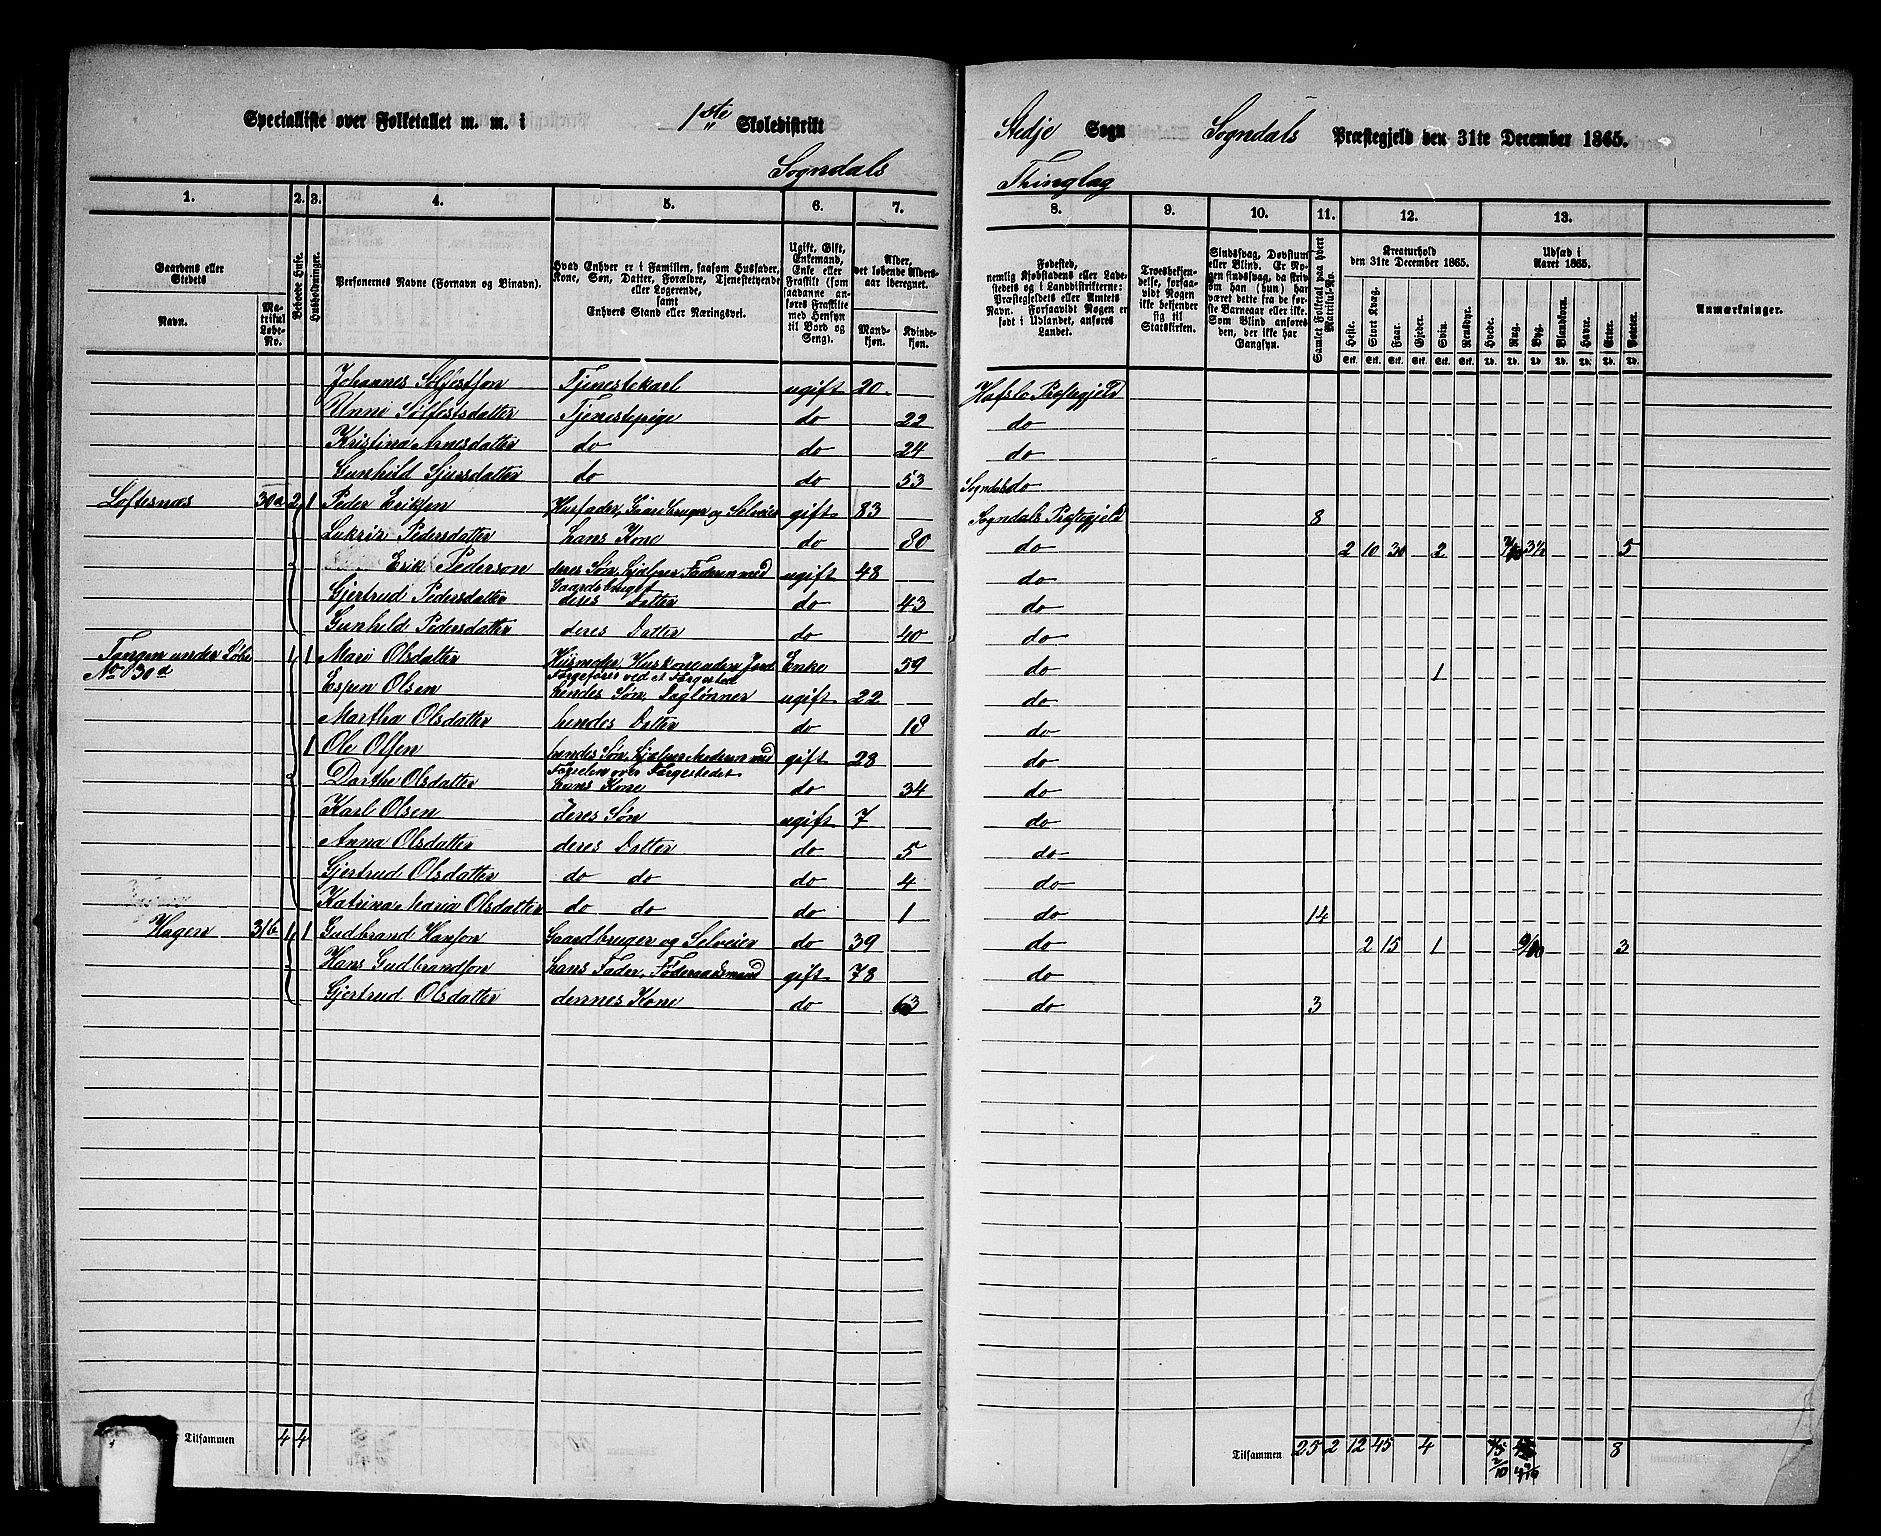 Specialliste over Folketallet m. m. i 1ste Skoledistrikt
Sogndals
1. 2. 3. 4. 5. 6. 7.
Gaardens eller Stedets
Navn.
Matrikul Løbe-No.
Beboede Huse.
Husholdninger.
Personernes Navne (Fornavn og Binavn).
Hvad Enhver er i Familien, saasom Husfader, Kone, Søn, Datter, Forældre, Tjenestetyende eller Logerende,
samt
Enhvers Stand eller Næringsvei.
Ugift, Gift, Enkemand, Enke eller Fraskilt (som saadanne anføres Fraskilte med Hensyn til Bord og Seng).
Alder, det løbende Aldersaar iberegnet.
Mandkjøn. Kvindekjøn.
Johannes Solfestson Tjenestekarl ugift 20
Unni Sølfestsdatter Tjenestepige do 22
Kristina Arnesdatter do do 24
Gunhild Sjursdatter do do 53
Loftesnæs 30a 2 1 Peder Eriksen Husfader, Gaardbruger og Selveier gift 83
Lukris Pedersdatter hans Kone do 80
Erik Pederson deres Søn, hjælper Faderen med Gaardsbruget ugift 48
Gjertrud Pedersdatter deres Datter do 43
Gunhild Pedersdatter deres Datter do 40
Tangen under Løbe No 30d 1 1 Mari Olsdatter Enke 59
Espen Olsen hendes Søn Daglønner ugift 22
Martha Olsdatter hendes Datter do 18
1 Ole Olsen hendes Søn, hjælper Moderen med gift 28
Dorthe Olsdatter hans Kone do 34
Karl Olsen deres Søn ugift 7
Anna Olsdatter deres Datter do 5
Gjertrud Olsdatter do do do 4
Katrina Maria Olsdatter do do do 1
Hagen 31b 1 1 Gudbrand Hanson Gaardbruger og Selveier do 39
Hans Gudbrandson hans Fader, Føderaadsmand gift 78
Gjertrud Olsdatter dennes Kone do 63
Tilsammen 4 4
Stedje Sogn Sogndals Præstegjeld den 31te December 1865.
Thinglag
8. 9. 10. 11. 12. 13.
Fødested,
nemlig Kjøbstadens eller Ladestedets og i Landdistrikterne: Præstegjeldets eller Amtets Navn. Forsaavidt Nogen er født i Udlandet, anføres Landet.
Troesbekjendelse, forsaavidt Nogen ikke bekjender sig til Statskirken.
Sindssvag, Døvstum eller Blind. Er Nogen sindssvag, da skrives om han (hun) har været dette fra de første Barneaar eller ikke. Som Blind anføres den, der ikke har Gangsyn.
Samlet Folketal paa hvert Matrikul-No.
Kreaturhold den 31te December 1865.
Heste. Stort Kvæg. Faar. Gjeder. Svin. Rensdyr.
Udsæd i Aaret 1865.
Hvede. Rug. Byg. Blandkorn. Havre. Erter. Poteter.
Anmærkninger.
Hafslo Præstegjeld
do
do
Sogndals do
Sogndals Præstegjeld 8
do 2 10 30 2 5
do
do
do
1
do
do
do
do
do
do
do
do 14
do 2 15 1 3
do
do 3
Tilsammen 25 2 12 45 4 8